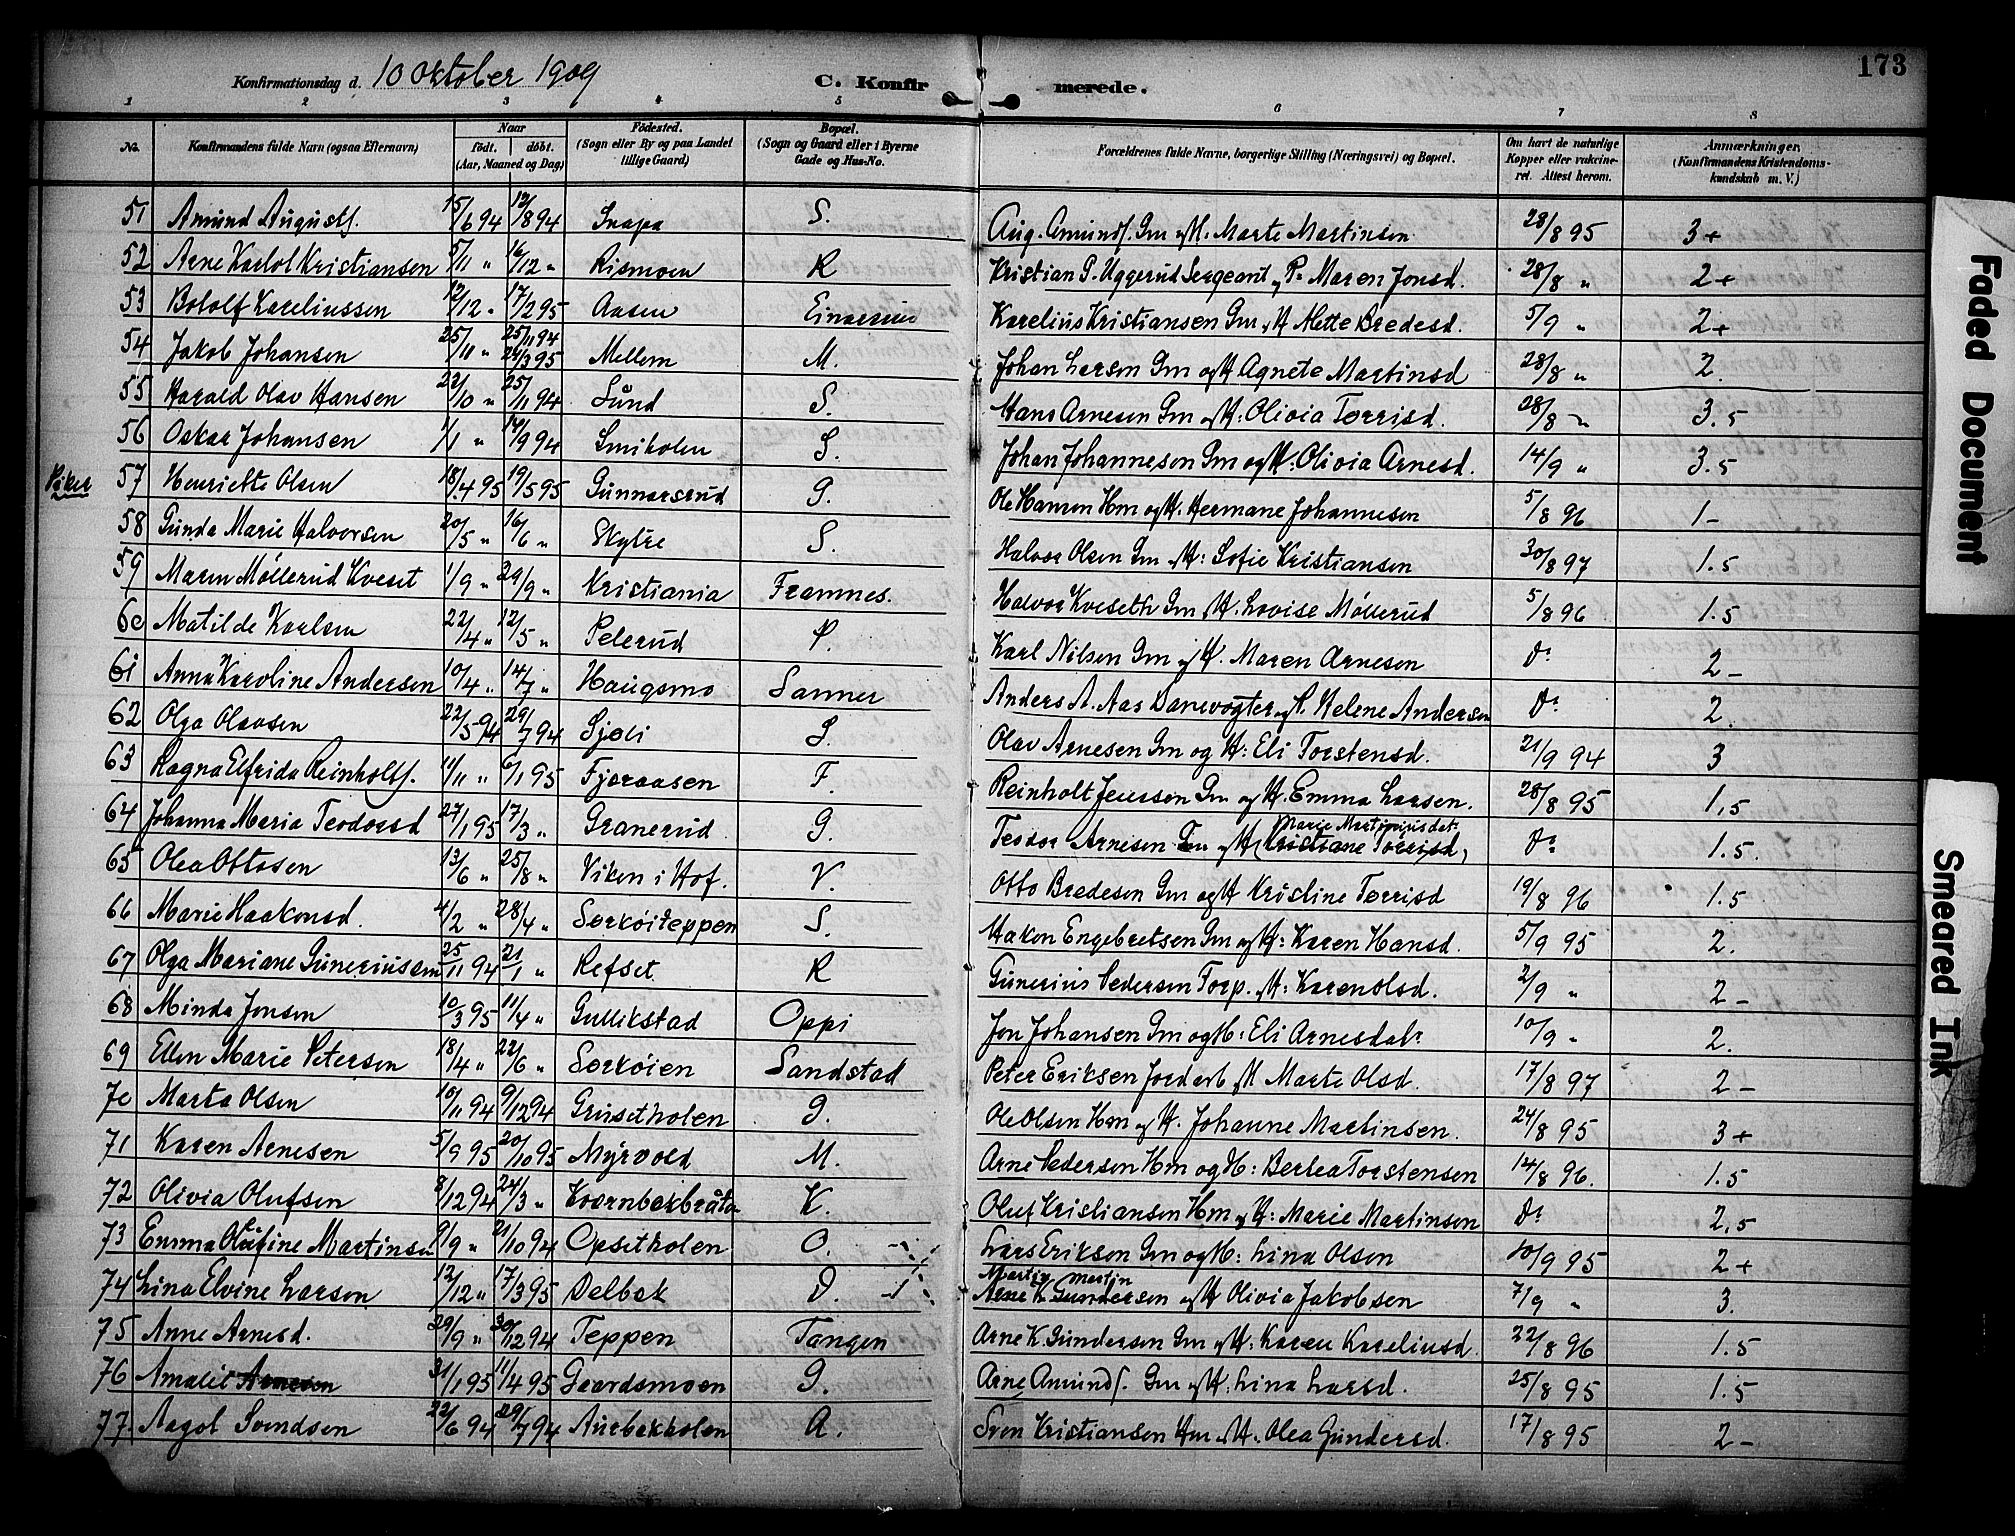 173
Konfirmationsdag d. 10 Oktober 1909 C. Konfir merede.
1 2 3 4 5 6 7 8
No. Konfirmandens fulde Navn (ogsaa Efternavn) Naar født. døbt. (Aar, Maaned og Dag) Fødested. (Sogn eller By og paa Landet tillige Gaard) Bopæl. (Sogn og Gaard eller i Byerne Gade og Hus-No. Forældrenes fulde Navne, borgerlige Stilling (Næringsvei) og Bopæl. Om havt de naturlige Kopper eller vakcineret. Attest herom. Anmærkninger. (Konfirmandens Kristendomskundskab m. V.)
51 Amund Augusts. 15/6 94 12/8 94 Snapa S. Aug. Amunds. Gm og H. Marte Martinsen 28/8 95 3+
52 Arne Karlot Kristiansen 5/11 " 16/12 " Rismoen R Kristian P. Uggerud Sergeant og P. Maren Jonsd. 28/8 " 2+
53 Botolf Kareliussen 12/12 " 17/2 95 Aasen Einarrud Karelius Kristiansen Gm og H Mette Bredesd. 5/9 " 2+
54 Jakob Johansen 25/11 " 25/11 94 24/3 95 Mellem M. Johan Larsen Gm og H Agnete Martinsd 28/8 " 2.
55 Harald Olav Hansen 22/10 " 25/11 94 Lund S. Hans Arnesen Gm og H: Olivia Torrisd. 28/8 " 3.5
56 Oskar Johansen 1/1 " 14/9 94 Smikolen S. Johan Johannesen Gm og H: Olivia Arnesd. 14/9 " 3.5
Piker
57 Henriette Olsen 18/4 95 19/5 95 Gunnarsrud G. Ole Hansen Hm og H. Hermane Johannesen 5/8 96 1-
58 Gunda Marie Halvorsen 20/5 " 16/6 " Skytte S. Halvor Olsen Gm og H: Sofie Kristiansen 30/8 97 1.5
59 Maren Møllerud Kveset 1/9 " 29/9 " Kristiania Framnes. Halvor Kveseth Gm og H. Lovise Møllerud 5/8 96 1.5
60 Matilde Karlsen 22/4 " 12/5 " Pelerud P. Karl Nilsen Gm og H. Maren Arnesen Do 2-
61 Anna Karoline Andersen 10/4 " 14/7 " Haugsmo Sanner Anders A. Aas Banevogter og H. Helene Andersen Do 2.
62 Olga Olavsen 22/5 94 29/7 94 Sjøli S. Olav Arnesen Gm og H: Eli Torstensd. 21/9 94 3
63 Ragna Elfrida Reinholts. 11/11 " 6/1 95 Fjæraasen F. Reinholt Jenssen Gm og H. Emma Larsen. 28/8 95 1.5
64 Johanna Maria Teodorsd 27/1 95 17/3 " Granerud G. Teodor Arnesen Gm og H Marie Martiniusdat. Kristiane Torrisd, Do 1.5.
65 Olea Ottosen 13/6 " 25/8 " Viken i Hof. V. Otto Bredesen Gm og H Kristine Torrisd 19/8 96 1.5
66 Marie Haakonsd. 4/2 " 28/4 " Sorkøiteppen S. Hakon Engebretsen Gm og H: Karen Hansd. 5/9 95 2.
67 Olga Mariane Guneriussen 25/11 94 21/1 " Refset R Gunerius Pedersen Torp. og H: Karen Olsd. 2/9 " 2-
68 Minda Jonsen 10/3 95 11/4 " Gullikstad Oppi Jon Johansen Gm og H: Eli Arnesdatr 10/9 " 2.
69 Ellen Marie Petersen 18/4 " 22/6 " Sorkøien Sandstad Peter Eriksen Jordarb og H Marte Olsd. 17/8 97 2-
70 Marta Olsen 10/11 94 9/12 94 Grusetkolen G. Ole Olsen Hm og H. Johanne Martinsen. 24/8 95 3+
71 Karen Arnesen 5/9 95 20/10 95 Myrvold M. Arne Pedersen Hm og H: Bertea Torstensen 14/8 96. 1.5
72 Olivia Olufsen 3/12 94 24/3 " Kvernbekbråten K. Oluf Kristiansen Hm og H: Marie Martinsen Do 2.5
73 Emma Olufine Martinsen 9/9 " 21/10 94 Opsetkolen O. Lars Eriksen Gm og H: Lina Olsen 10/9 95 2+
74 Lina Elvine Larsen 12/12 " 17/3 95 Delbek D. Martin Martin Arne K Gundersen og H Olivia Jakobsen 7/9 " 3.
75 Anne Arnesd. 29/9 " 30/12 94 Teppen Tangen Arne K. Gundersen Gm og H: Karen Kareliusd. 22/8 96 1.5
76 Amalie Arnesen 31/1 95 11/4 95 Gaardsmoen G. Arne Amunds. Gm og H: Lina Larsd. 25/8 95 1.5
77. Aagot Svendsen 22/6 94 29/7 94 Aurbekkolen A. Sven Kristiansen Hm og H. Olea Gundersd. 17/8 95 2-
Faded Document
Smeared Ink